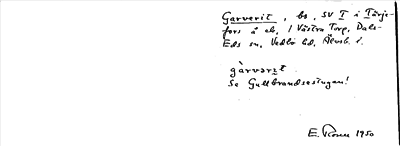 Garverit, bs, SV I å Tärje-
fors å eb, 1 Västra Torp, Dals-
Eds sn, Vedbo hd, Älvsb. l.
gàrvərɩt
Se Gullbrandsestugan!
E. 1950